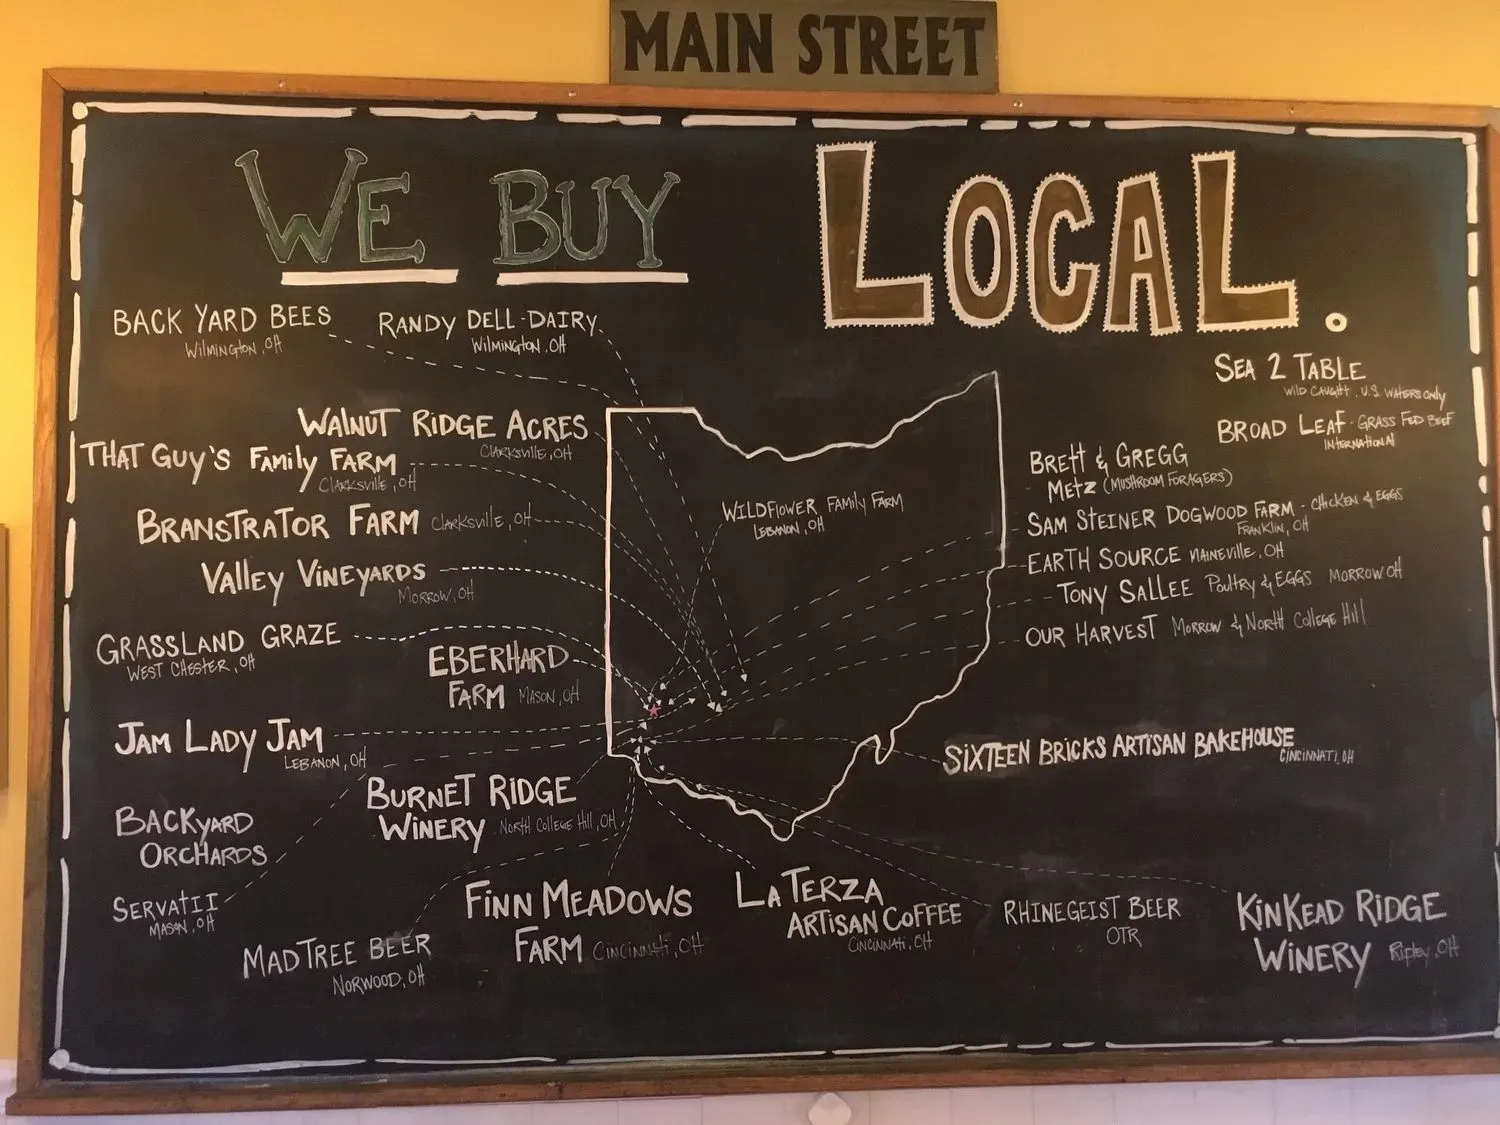 MAIN STREET
WE BUY LOCAL.
BACK YARD BEES
WILMINGTON, OH
RANDY DELL-DAIRY
WILMINGTON, OH
WALNUT RIDGE ACRES
CLARKSVILLE, OH
THAT GUY'S FAMILY FARM
CLARKSVILLE, OH
BRANSTRATOR FARM CLARKSVILLE, OH
VALLEY VINEYARDS
MORROW, OH
GRASSLAND GRAZE
WEST CHESTER, OH
EBERHARD
FARM MASON, OH
JAM LADY JAM
LEBANON, OH
BURNET RIDGE
WINERY NORTH COLLEGE HILL, OH
BACKYARD
ORCHARDS
SERVATII
MASON, OH
MADTREE BEER
NORWOOD, OH
FINN MEADOWS
FARM CINCINNATI, OH
WILDFLOWER FAMILY FARM
LEBANON, OH
SEA 2 TABLE
WILD CAUGHT, U.S. WATERS ONLY
BROAD LEAF - GRASS FED BEEF
INTERNATIONAL
BRETT & GREGG
METZ (MUSHROOM FORAGERS)
SAM STEINER DOGWOOD FARM - CHICKEN & EGGS
FRANKLIN, OH
EARTH SOURCE MAINEVILLE, OH
TONY SALLEE POULTRY & EGGS MORROW OH
OUR HARVEST MORROW & NORTH COLLEGE HILL
SIXTEEN BRICKS ARTISAN BAKEHOUSE
CINCINNATI, OH
LA TERZA
ARTISAN COFFEE
CINCINNATI, OH
RHINEGEIST BEER
OTR
KINKEAD RIDGE
WINERY RIPLEY, OH